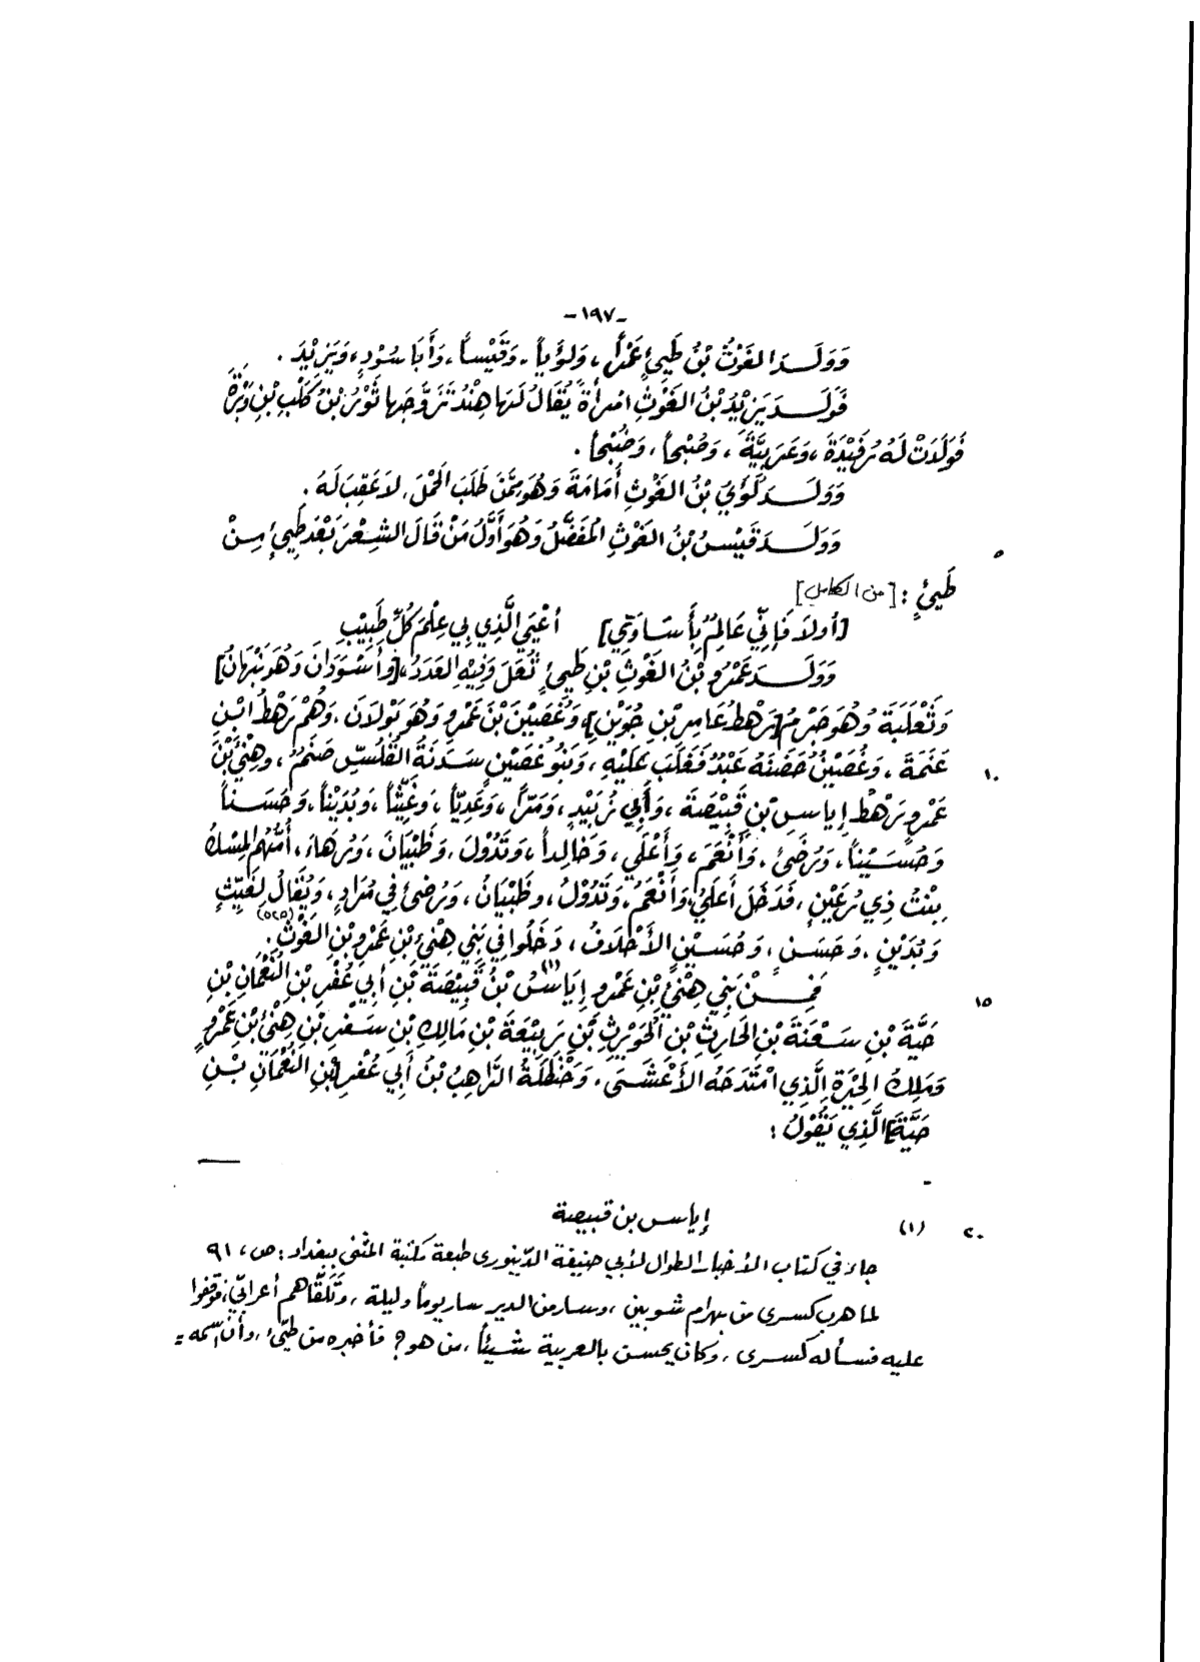 -١٩٧-
وَوَلَـدَ الغَوْثُ بْنُ طَيِئٍ عَمْراً، وَلُؤَياً، وَقَيْساً، وَأَبَا سُوْدٍ، وَيَزِيْدَ.
فَوَلَـدَ يَزِيْدُ بْنُ الغَوْثِ امْرأَةً يُقَالُ لَهَا هِنْدُ تَزَوَّجَها ثَوْرُ بْنُ كَلْبِ بْنِ وَبَرَةَ
فَوَلَدَتْ لَهُ رُفَيْدَةَ، وَعَرَبِيَّةَ، وَصُبْحاً، وَضُبْحاً.
وَوَلَـدَ لُؤَيُّ بْنُ الغَوْثِ أُمَامَةَ وَهُوَ مِمَّنْ طَلَبَ الحَمْلَ، لاَ عَقِبَ لَهُ.
وَوَلَـدَ قَيْسُ بْنُ الغَوْثِ المُفَضَّلُ وَهُوَ أَوَّلُ مَنْ قَالَ الشِعْرَ بَعْدَ طَيِئٍ مِـنْ
٥
طَيِئٍ: [من الكامل]
[أولاَ فَإِنِّي عَالِمٌ بِأَسَاوَتِي] أعْيَى الَّذِي بِي عِلْمَ كُلِّ طَبِيْبِ
وَوَلَـدَ عَمْرُو بْنُ الغَوْثِ بْنِ طَيِئٍ ثُعَلَ وَفِيْهِ العَدَدُ، [وأسْوَدَانَ وَهُوَ نَبْهَانُ]
وَثَعْلَبَةَ وَهُوَ جَرْمُ [رَهْطُ عَامِرِ بْنِ جُوَيْنٍ]، وَغُصَيْنَ بْنَ عَمْرٍو وَهُوَ بَوْلاَنَ، وَهُمْ رَهْطُ ابْـنِ
عَنَمَةَ، وَغُصَيْنٌ حَضَنَهُ عَبْدٌ فَغَلَبَ عَلَيْهِ، وَبَنُو غُصَيْنٍ سَدَنَةُ الفَلْسِ صَنَمٌ، وهِنْئَ بْنَ
١٠
عَمْرٍو رَهْطَ إِيَاسِ بْنِ قَبِيْصَةَ، وَأَبِي زُبَيْدٍ، وَمَرّاً، وَعَدِيّاً، وَغَيِّثاً، وَبُدَيْناً، وَحَسَـناً
وَحُسَـيْناً، وَرُضَىً، وَأَنْعَمَ، وَأَعْلَى، وَخَالِداً، وَتَدُوْلَ، وَظَبْيَانَ، وَرُهَاءَ، أُمُّهُم المِسْكُ
بِنْتُ ذِي رُعَيْنٍ، فَدَخَلَ أَعْلَى، وَأَنْعَمُ، وَتَدُوْلُ، وظَبْيَانُ، وَرُضَىً فِي مُرَادٍ، وَيُقَالُ لِغَيِّثٍ
وَبُدَيْنٍ، وَحَسَنٍ، وَحُسَـيْنٍ الأَحْلاَفُ، دَخَلُوا فِي بَنِي هِنْئِ بْنِ عَمْرِو بْنِ الغَوْثِ.
فَمِـنْ بَنِي هِنْئِ بْنِ عَمْرٍو إِيَاسُ (١) بْنُ قَبِيْصَةَ بْنِ أَبِي عُفْرِ بْنِ النُّعْمَانِ بْنِ
١٥
حَيَّةَ بْنِ سَعْنَةَ بْنِ الحَارِثِ بْنِ الحُوَيْرِثِ بْنِ رَبِيْعَةَ بْنِ مَالِكِ بْنِ سَفْرِ بْنِ هِنْئِ بْنِ عَمْرٍو
وَمَلِكُ الحِيْرَةِ الَّذِي امْتَدَحَهُ الأَعْشَـى، وَحَنْظَلَةُ الرَّاهِبُ بْنُ أَبِي عُفْرِ [بْنِ النُّعْمَانِ بْـنِ
حَيَّةَ] الَّذِي يَقُوْلُ:
(١) إياس بن قبيصة
٢٠
جاء في كتاب الأخبار الطوال لأبي حنيفة الدّينوري طبعة مكتبة المثنى ببغداد: ص، ٩١
لما هرب كسرى من بهرام شوبين، وسار من الدير سار يوماً وليلة، وتَلَقّاهم أعرابيّ، فوقفوا
عليه فسأله كسرى، وكان يحسن بالعربية شيئاً، من هو؟ فأخبره من طيّئ، وأنّ اسمه =